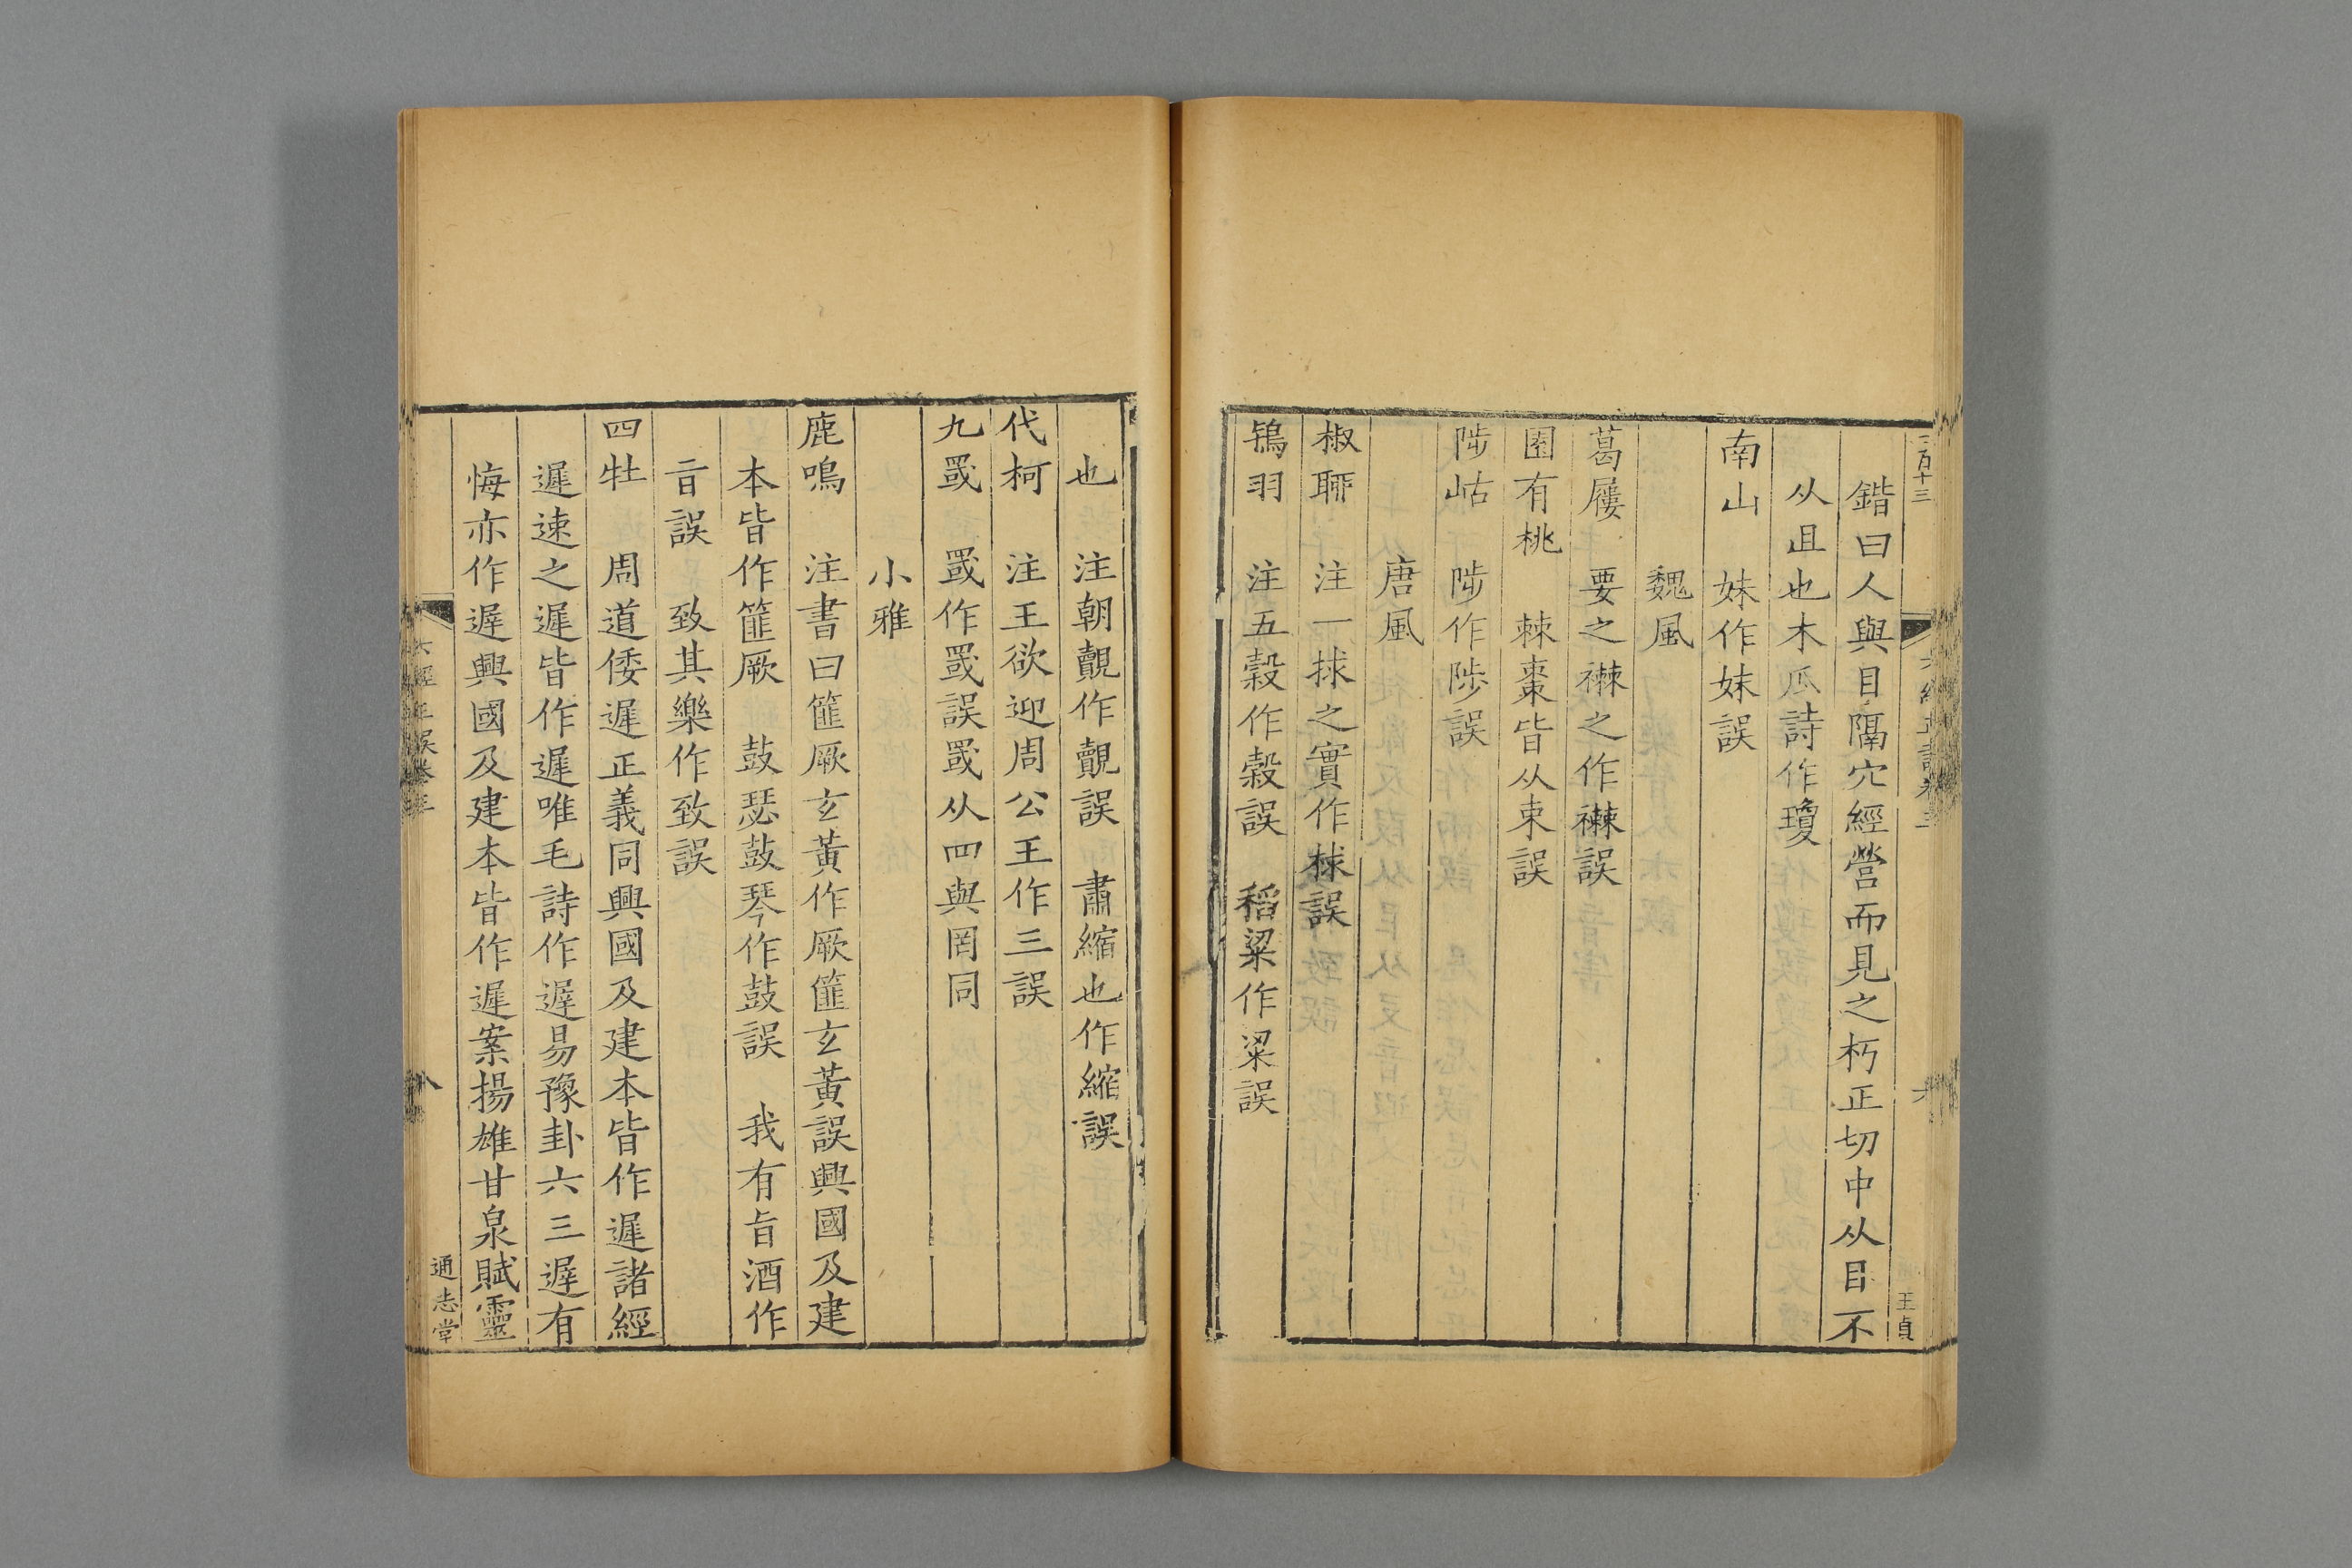 二百十三
王眞
鍇曰人與目隔穴經營而見之朽正切中从目不
从且也木瓜詩作瓊
南山　妹作妺誤
魏風
葛屨　要之襋之作襋誤
園有桃　棘棗皆从束誤
陟岵　陟作陟誤
唐風
椒聊　注一捄之實作梂誤
鴇羽　注五穀作穀誤　稻粱作梁誤
也　注朝覿作覿誤　肅縮也作縮誤
代柯　注王欲迎周公王作三誤
九罭　罭作罭誤罭从四與罔同
小雅
鹿鳴　注書曰篚厥玄黃作厥篚玄黃誤興國及建
本皆作篚厥　鼓瑟鼓琴作鼓誤　我有旨酒作
㫖誤　致其樂作致誤
四牡　周道倭遲正義同興國及建本皆作遲諸經
遲速之遲皆作遲唯毛詩作遟易豫卦六三遟有
悔亦作遟興國及建本皆作遲案揚雄甘泉賦靈
六經正誤卷三
八
通志堂